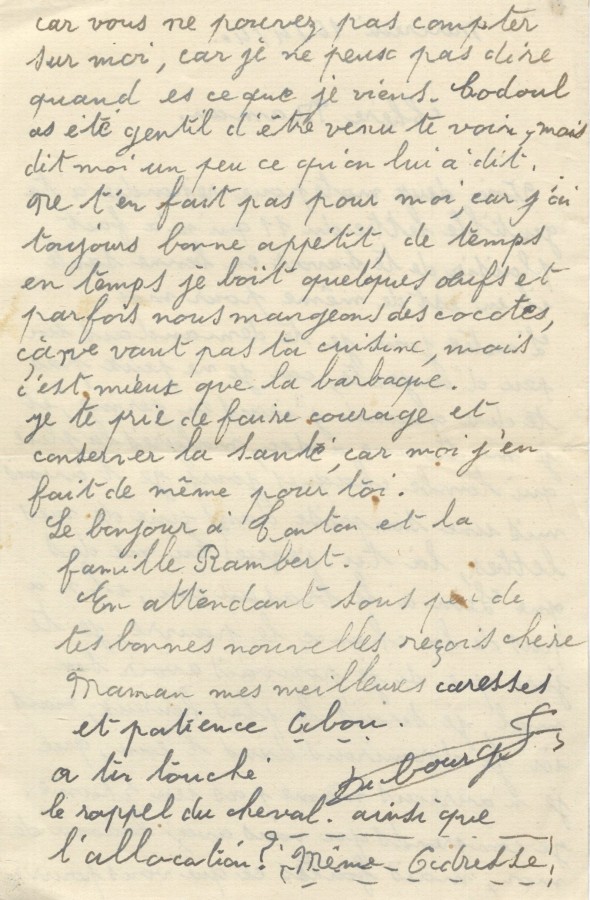 car vous ne pouvez pas compter
sur moi, car je ne peux pas dire
quand es ce que je viens. Codoul
as été gentil d'être venu te voir, mais
dit moi un peu ce qu'on lui a dit.
Ne t'en fait pas pour moi, car j'ai
toujours bonne appétit, de temps
en temps je boit quelques œufs et
parfois nous mangeons des cocotes,
çà ne vaut pas ta cuisine, mais
c'est mieux que la barbaque.
Je te prie de faire courage et
conserver la santé, car moi j'en
fait de même pour toi.
Le bonjour à Tonton et la
famille Rambert.
En attendant sous peu de
tes bonnes nouvelles reçois chère
Maman mes meilleures caresses
et patience
Dubourg
a tu touché
le rappel du cheval. ainsi que
l'allocation? Même Adresse